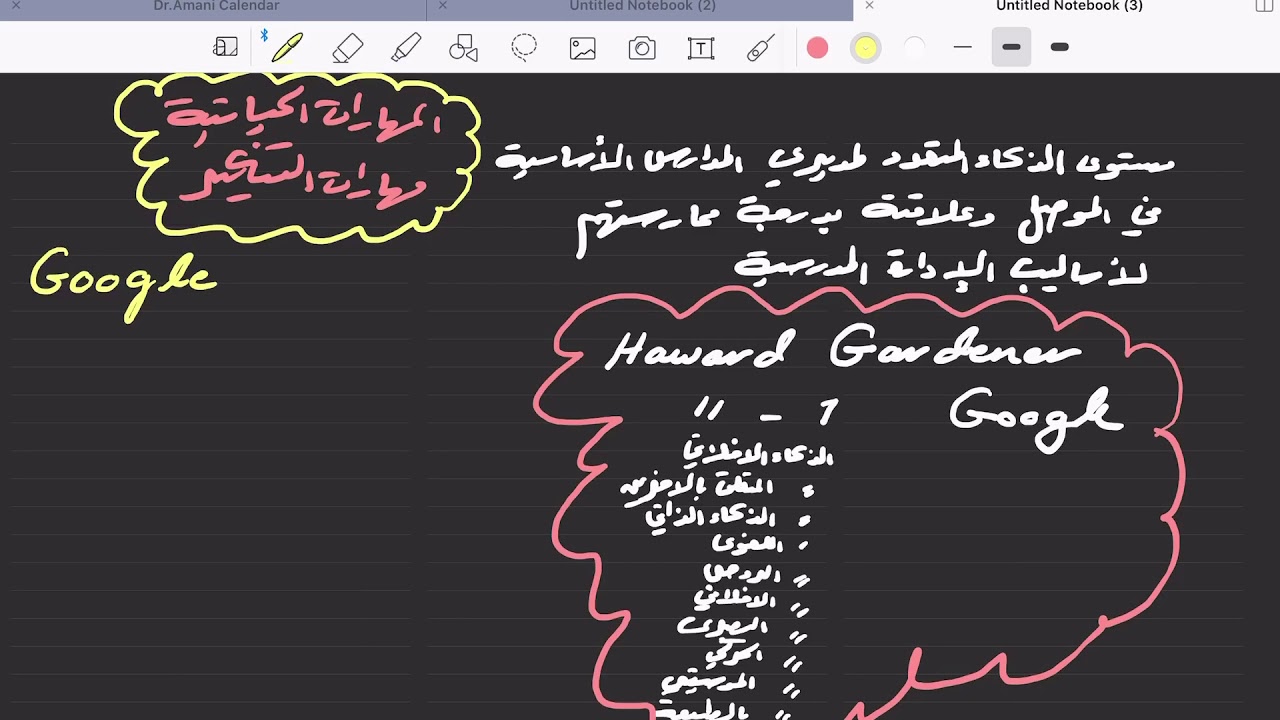 Dr.Amani Calendar
Untitled Notebook (2)
Untitled Notebook (3)
المهارات الحياتية
مهارات التفكير
Google
مستوى الذكاء المتعدد لمديري المدارس الأساسية
في الموصل وعلاقتة بدرجة ممارستهم
لأساليب الإدارة المدرسية
Haward Gardener
11 - 1
Google
الذكاء الاخلاقي
" المتعلق بالاخرين
" الذكاء الذاتي
" اللغوى
" الاخلاقي
" البصرى
" الحركي
" الموسيقي
" بالطبيعة